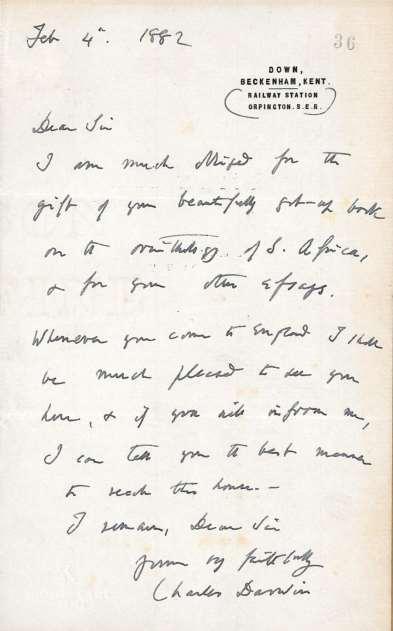 Feb 4th. 1882
36
DOWN,
BECKENHAM, KENT.
RAILWAY STATION
ORPINGTON. S.E.R.
Dear Sir
I am much obliged for the
gift of your beautifully got-up book
on the ornithology of S. Africa,
& for your other Essays.
Whenever you come to England I shall
be much pleased to see you
here, & if you will inform me,
I can tell you the best manner
to reach this house.—
I remain, Dear Sir
yours very faithfully
Charles Darwin